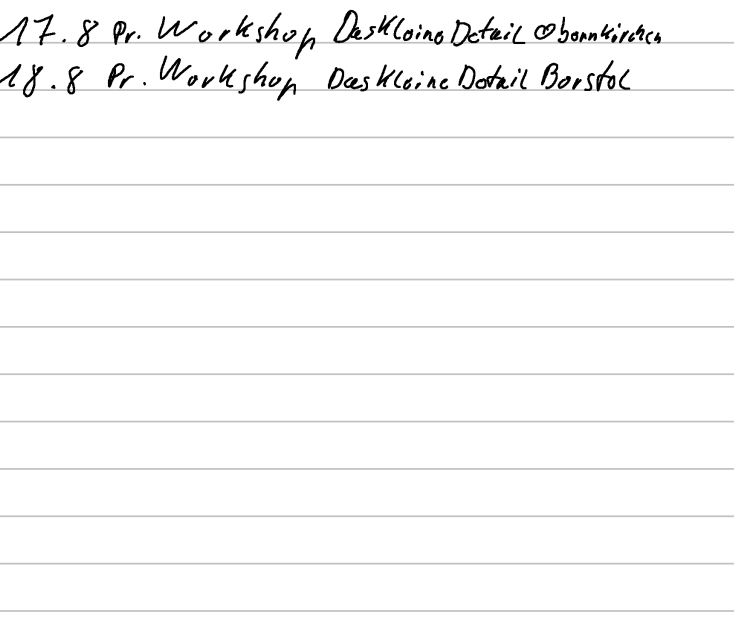 17.8 Pr. Workshop Das Kleine Detail Obernkirchen
18.8 Pr. Workshop Das Kleine Detail Borstel